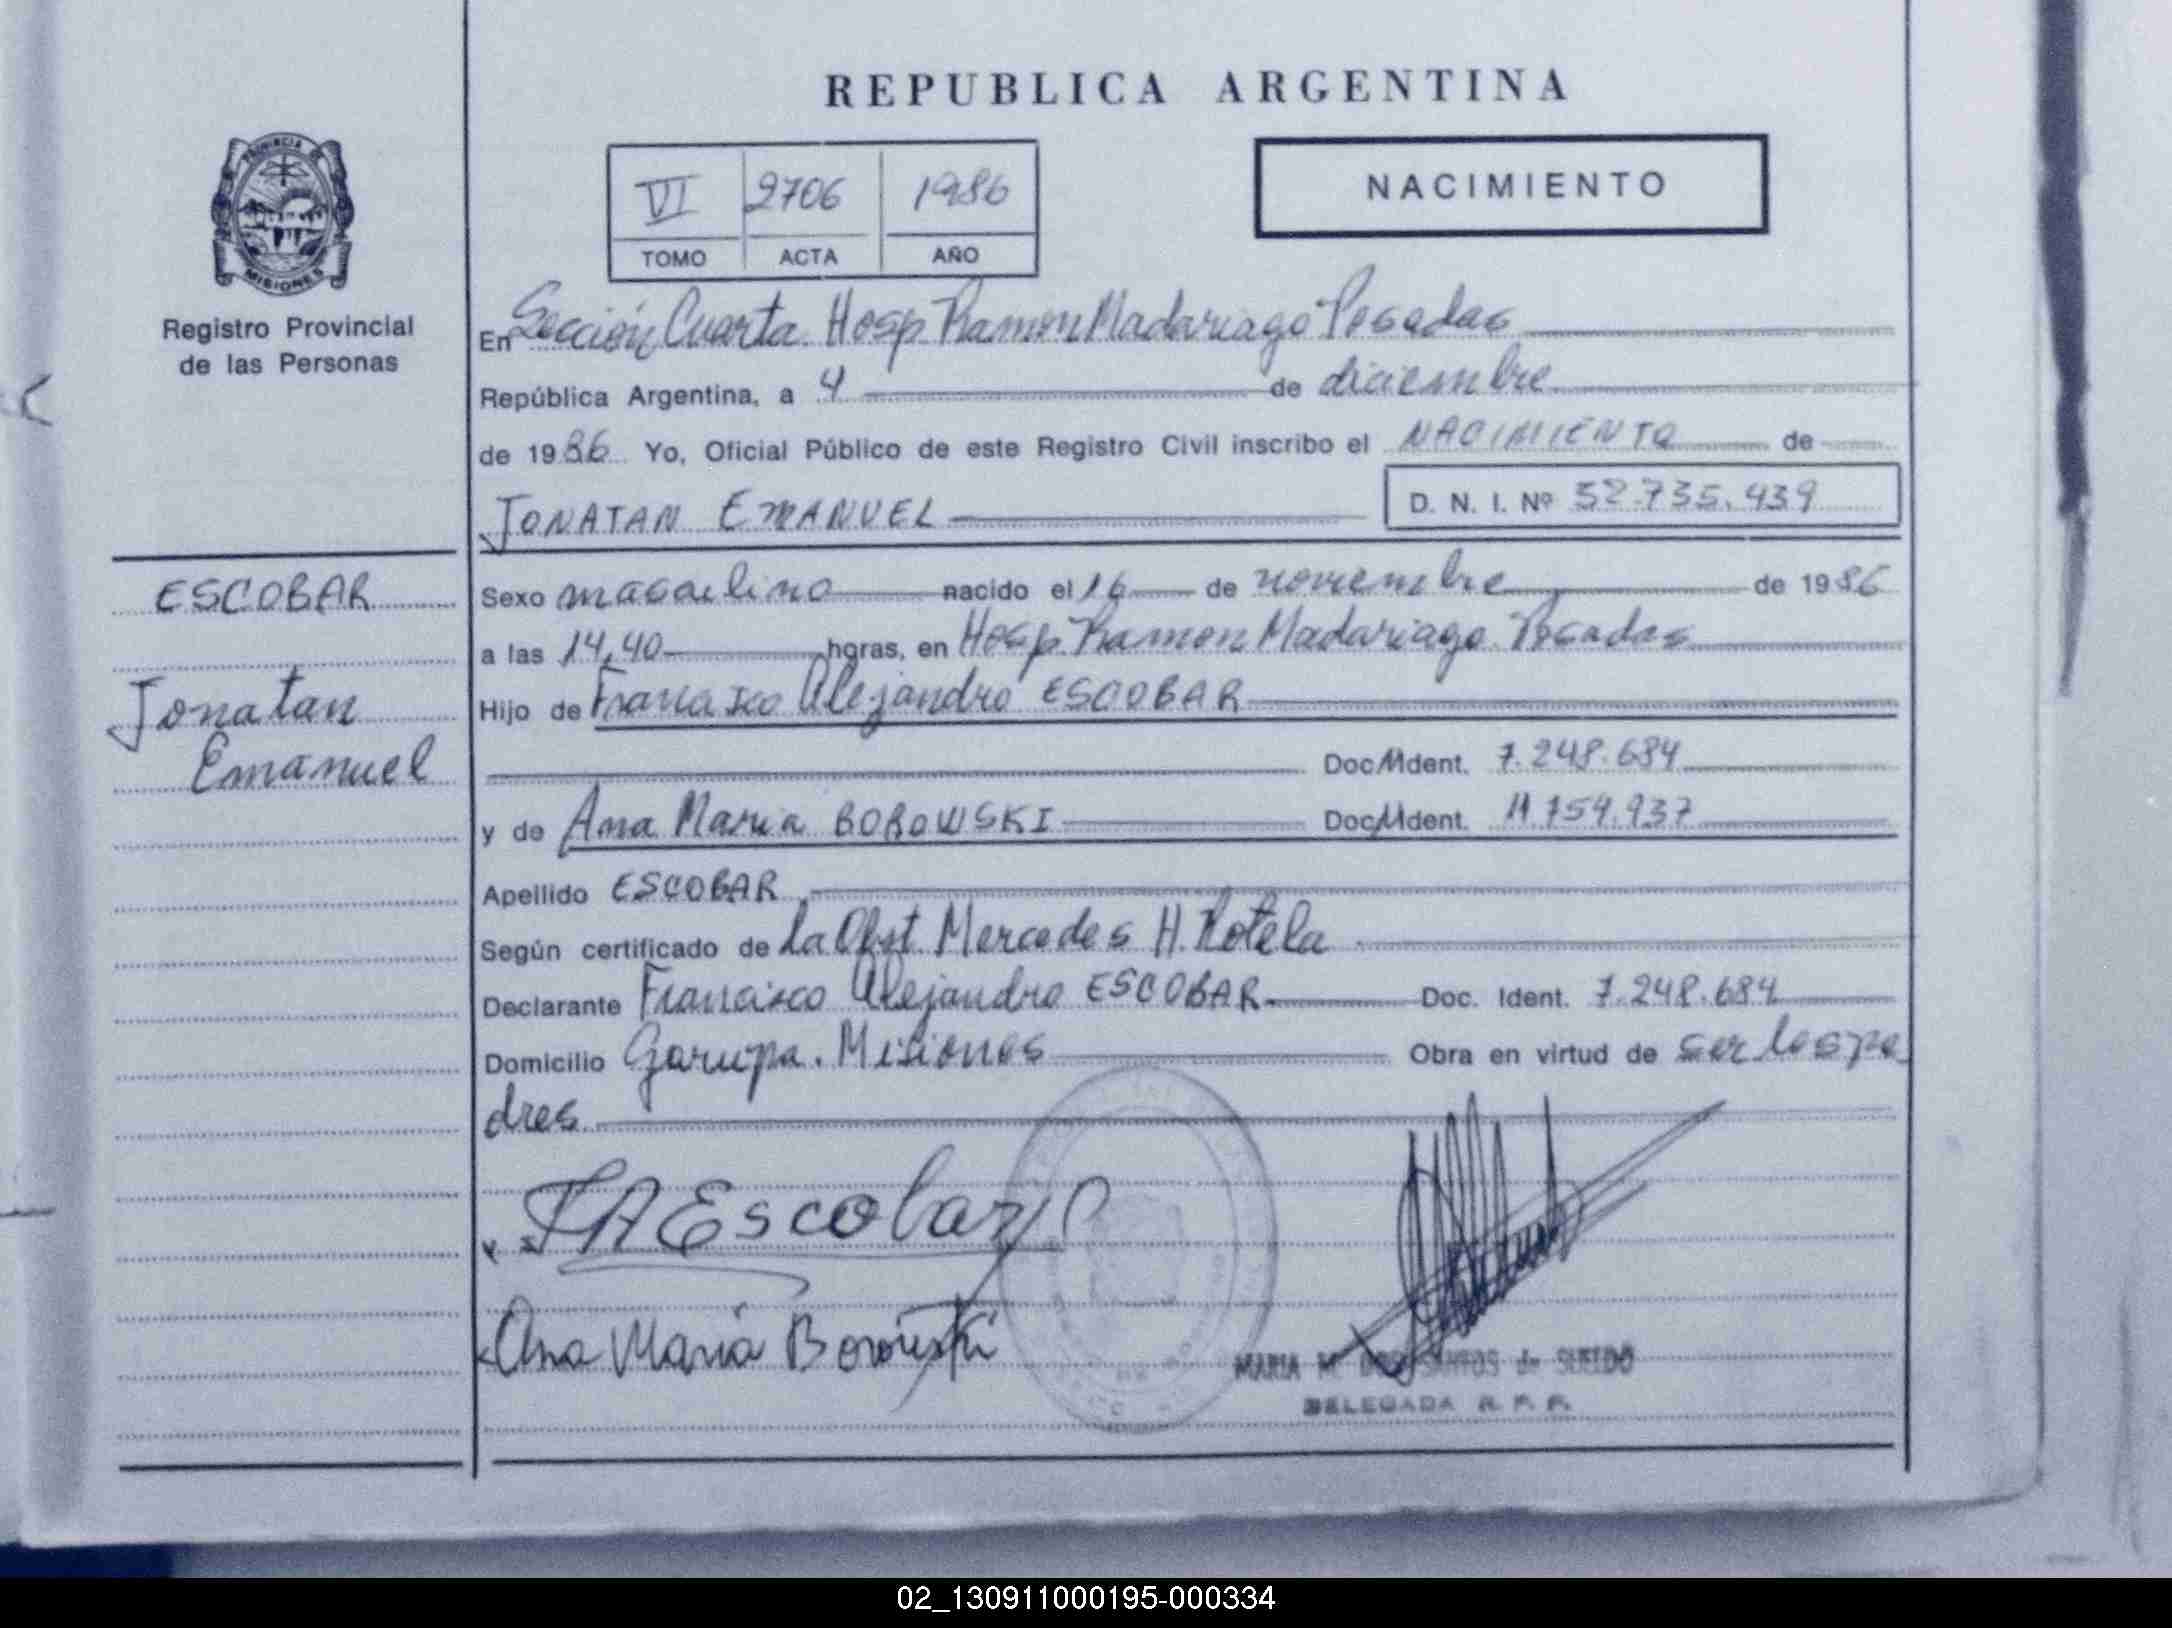 REPUBLICA ARGENTINA
PROVINCIA DE
MISIONES
Registro Provincial
de las Personas
VI 2706 1986
TOMO ACTA AÑO
NACIMIENTO
En Sección Cuarta Hosp Ramon Madariaga Posadas
República Argentina, a 4 de diciembre
de 1986 Yo, Oficial Público de este Registro Civil inscribo el NACIMIENTO de
JONATAN EMANUEL D. N. I. Nº 32.735.439
ESCOBAR
Jonatan
Emanuel
Sexo masculino nacido el 16 de noviembre de 1986
a las 14,40 horas, en Hosp. Ramon Madariaga Posadas
Hijo de Francisco Alejandro ESCOBAR
Doc. Ident. 7.248.684
y de Ana Maria BOROWSKI Doc. Ident. 11.754.937
Apellido ESCOBAR
Según certificado de la Obst Mercedes H. Rotela
Declarante Francisco Alejandro ESCOBAR Doc. Ident. 7.248.684
Domicilio Garupa. Misiones Obra en virtud de ser los pa
dres
FAEscobar
Ana Maria Borowski
MARIA M. DOS SANTOS de SUELDO
DELEGADA R. P. P.
02_130911000195-000334